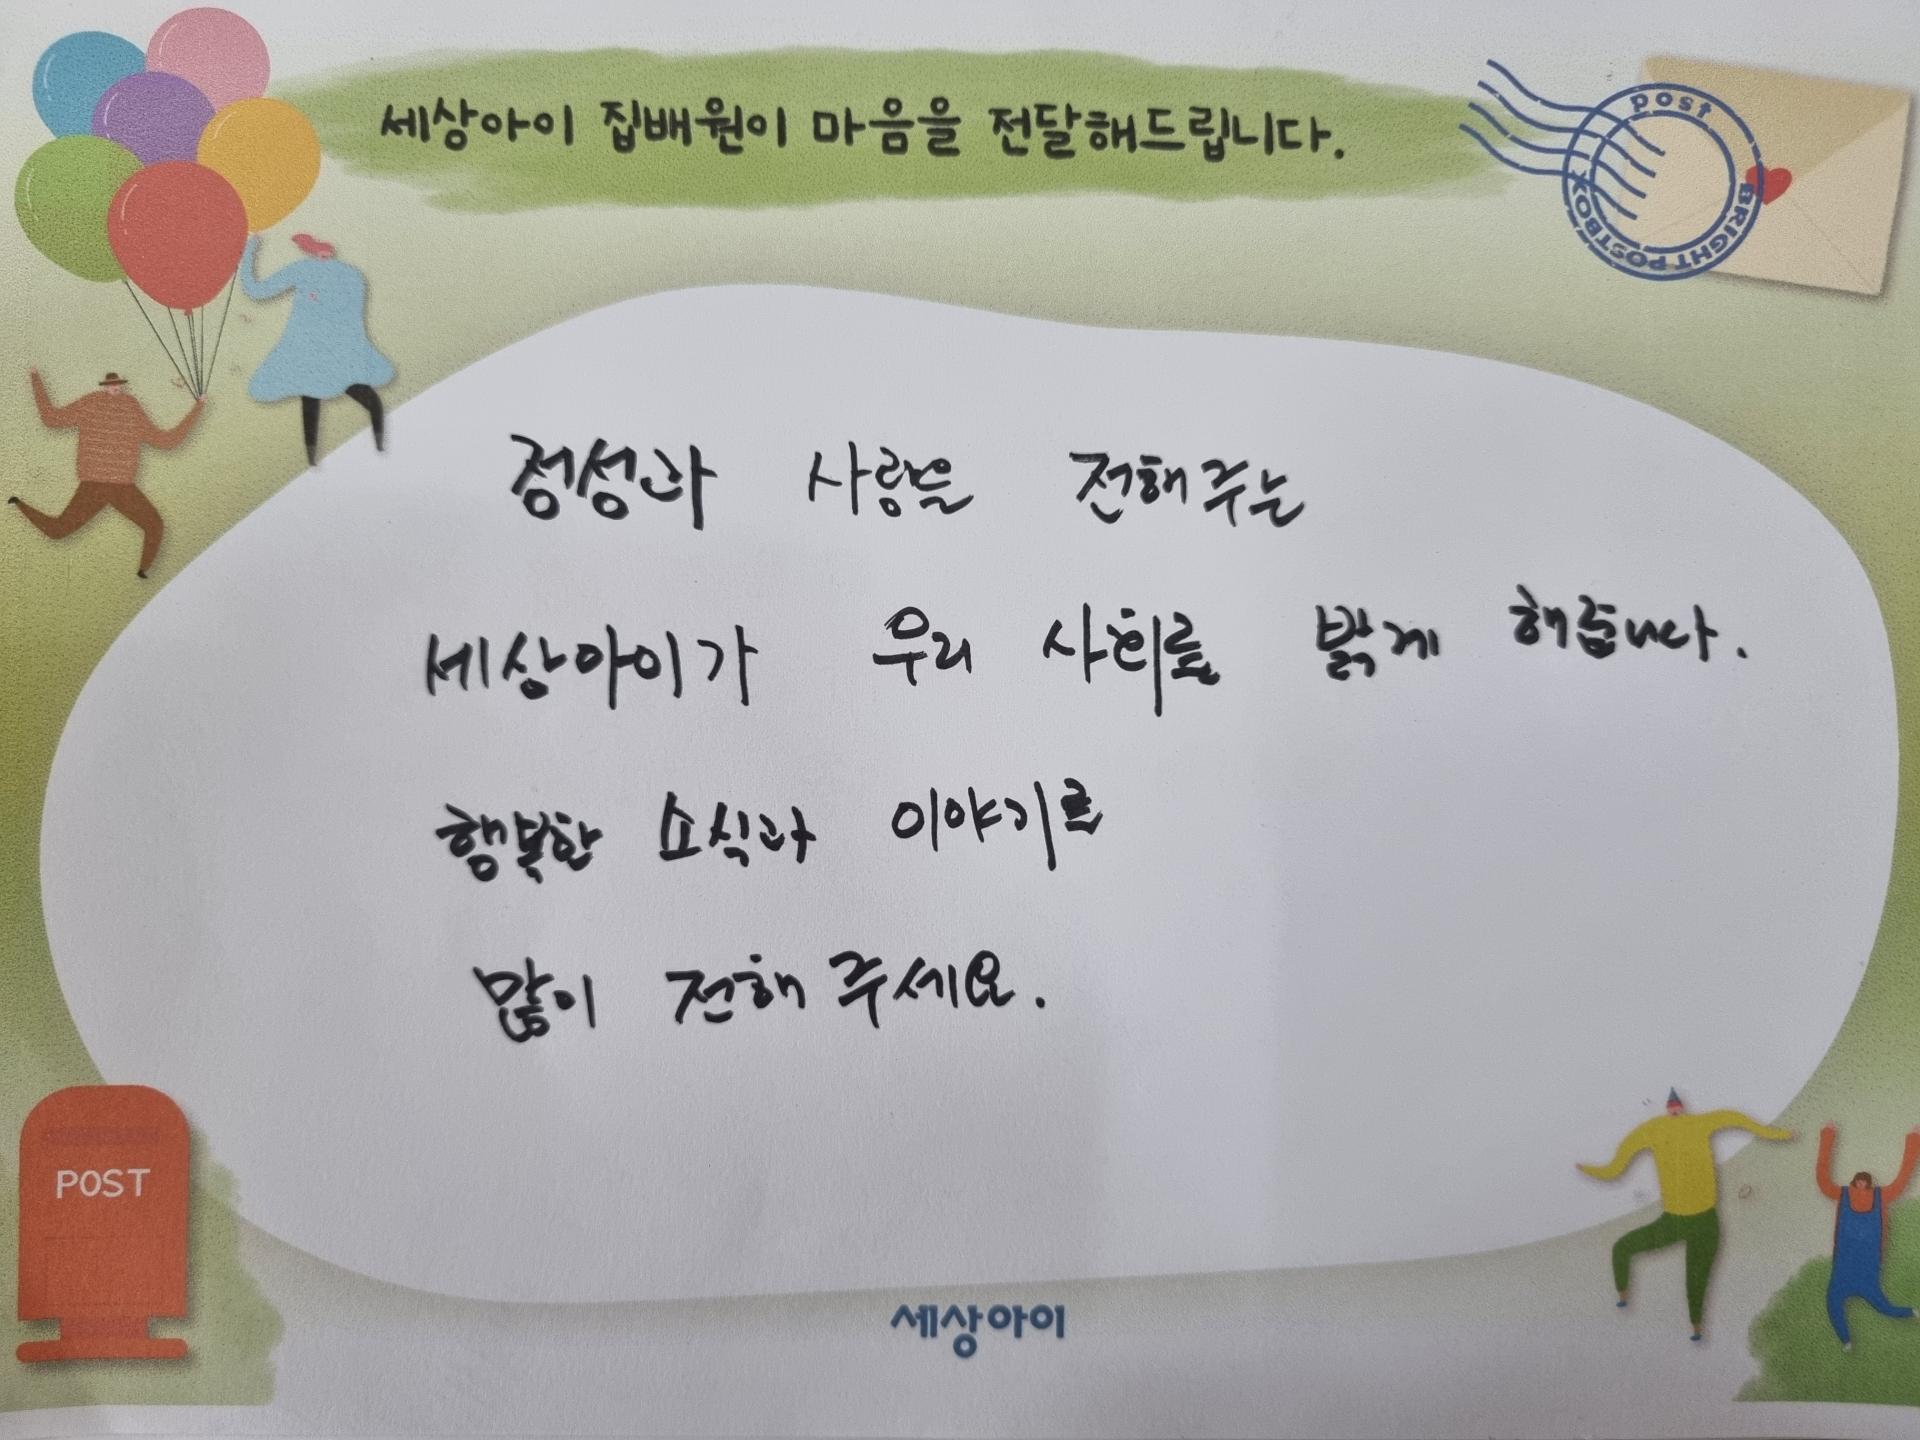 세상아이 집배원이 마음을 전달해드립니다.
post
BRIGHT POSTBOX
정성과 사랑을 전해주는
세상아이가 우리 사회를 밝게 해줍니다.
행복한 소식과 이야기를
많이 전해 주세요.
POST
세상아이